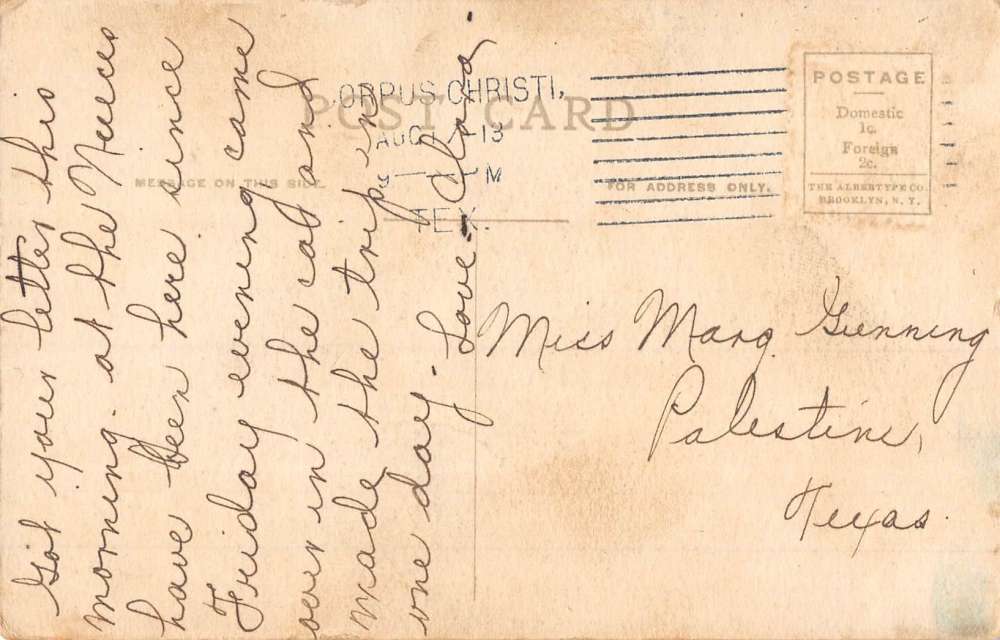 POST CARD
CORPUS CHRISTI,
AUG 13
M
TEX.
MESSAGE ON THIS SIDE.
FOR ADDRESS ONLY.
POSTAGE
Domestic
1c.
Foreign
2c.
THE ALBERTYPE CO.
BROOKLYN, N. Y.
Got your letter this
morning. at the Nueces
have been here since
Friday evening came
over in the car and
made the trip in
one day. Love.
Miss Marg Gunning
Palestine,
Texas.